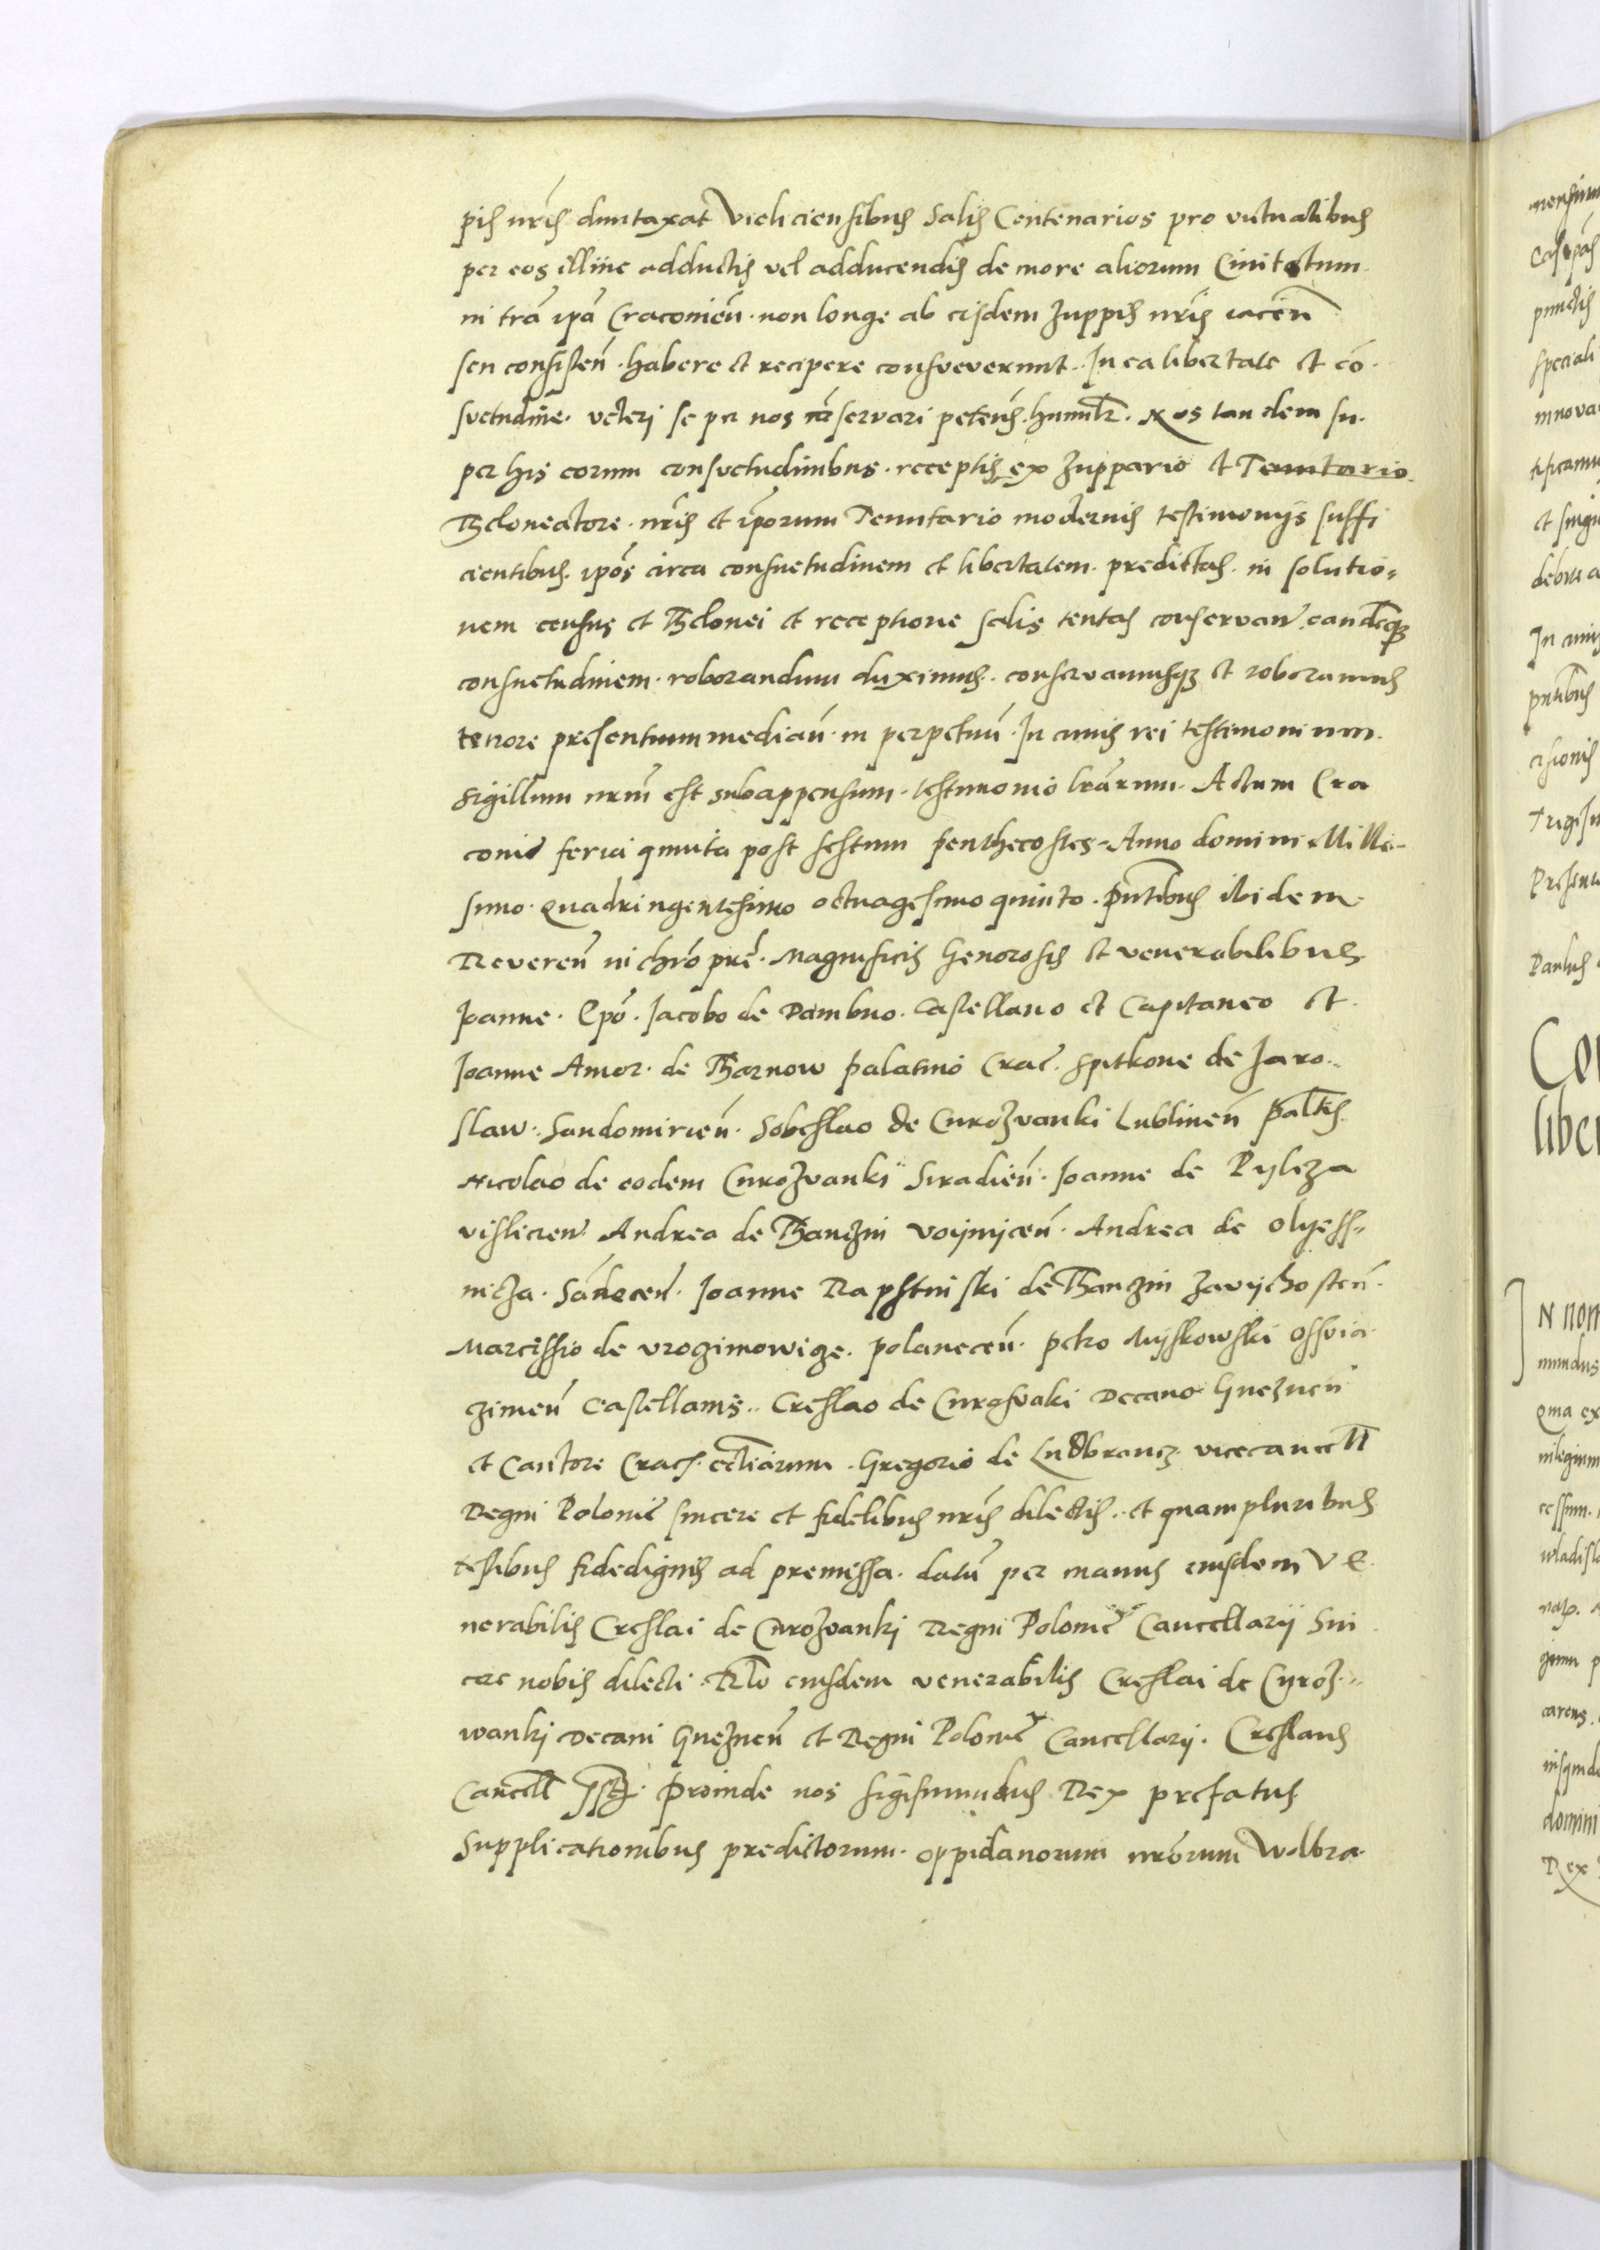 pis nr̃is duntaxat Vieliciensibus Salis Centenarios pro victualibus
per eos illinc adductis vel adducendis de more aliorum Civitatum
in trã ipã Craconieñ non longe ab eisdem Zuppis nr̃is iaceñ
seu consisteñ habere et recipere consveverunt. In ea libertate et cõ-
svetudine veteri se per nos cõservari peteñs humil̃r. Nos tandem su-
per his eorum consvetudinibus receptis ex Zuppario et Tenutario
Theloneatore nr̃is et ip̃orum Tenutario modernis testimonijs suffi
cientibus ip̃os circa consuetudinem et libertatem predictas in solutio-
nem census et Thelonei et receptione salis tentas conservan̄ eandẽq3
consuetudinem roborandum duximus conservamusq3 et roboramus
tenore presentium mediañ in perpetuũ. In cuius rei testimonium
sigillum nr̃m est subappensum testimonio lr̃arum. Actum Cra
conie feria quinta post festum penthecostes Anno domini Mille-
simo Quadringentesimo octuagesimo quinto. p̃ntibus ibidem
Revereñ in chr̃o pr̃e Magnificis Generosis et venerabilibus
Joanne Ep̃o. Jacobo de Dambno Castellano et Capitaneo et
Joanne Amor de Tharnow palatino Crac̃. Spitkone de Jaro-
slaw Sandomirieñ. Sobeslao de Curozvanki Lublineñ Pal̃tis
Nicolao de eodem Curozvanki Siradieñ. Joanne de Pylcza
vislicieñ Andrea de Thanczin Voijnyceñ. Andrea de Olyess-
nicza Sandeceñ. Joanne Rapstinski de Thanczin Zavijchosteñ
Marcissio de Vrozimowize polaneceñ. Petro Mijskowski Osswia
zimeñ Castellanis. Creslao de Curosvaki Decano Gnezneñ
et Cantore Crac̃ ecl̃iarum. Gregorio de Ludbrancz vicecancell
Regni Polonie sincere et fidelibus nr̃is dilectis et quampluribus
testibus fidedignis ad premissa. datũ per manus eiusdem Ve
nerabilis Creslai de Curozvankj Regni Polonie Cancellarij Sin
cere nobis dilecti. Rl̃o eiusdem venerabilis Creslai de Cyroz-
wankj Decani Gnezneñ et Regni Polonie Cancellarij. Creslaus
Cancell sst̃. Proinde nos Sigismundus Rex prefatus
Supplicationibus predictorum oppidanorum nr̃orum Wolbra-